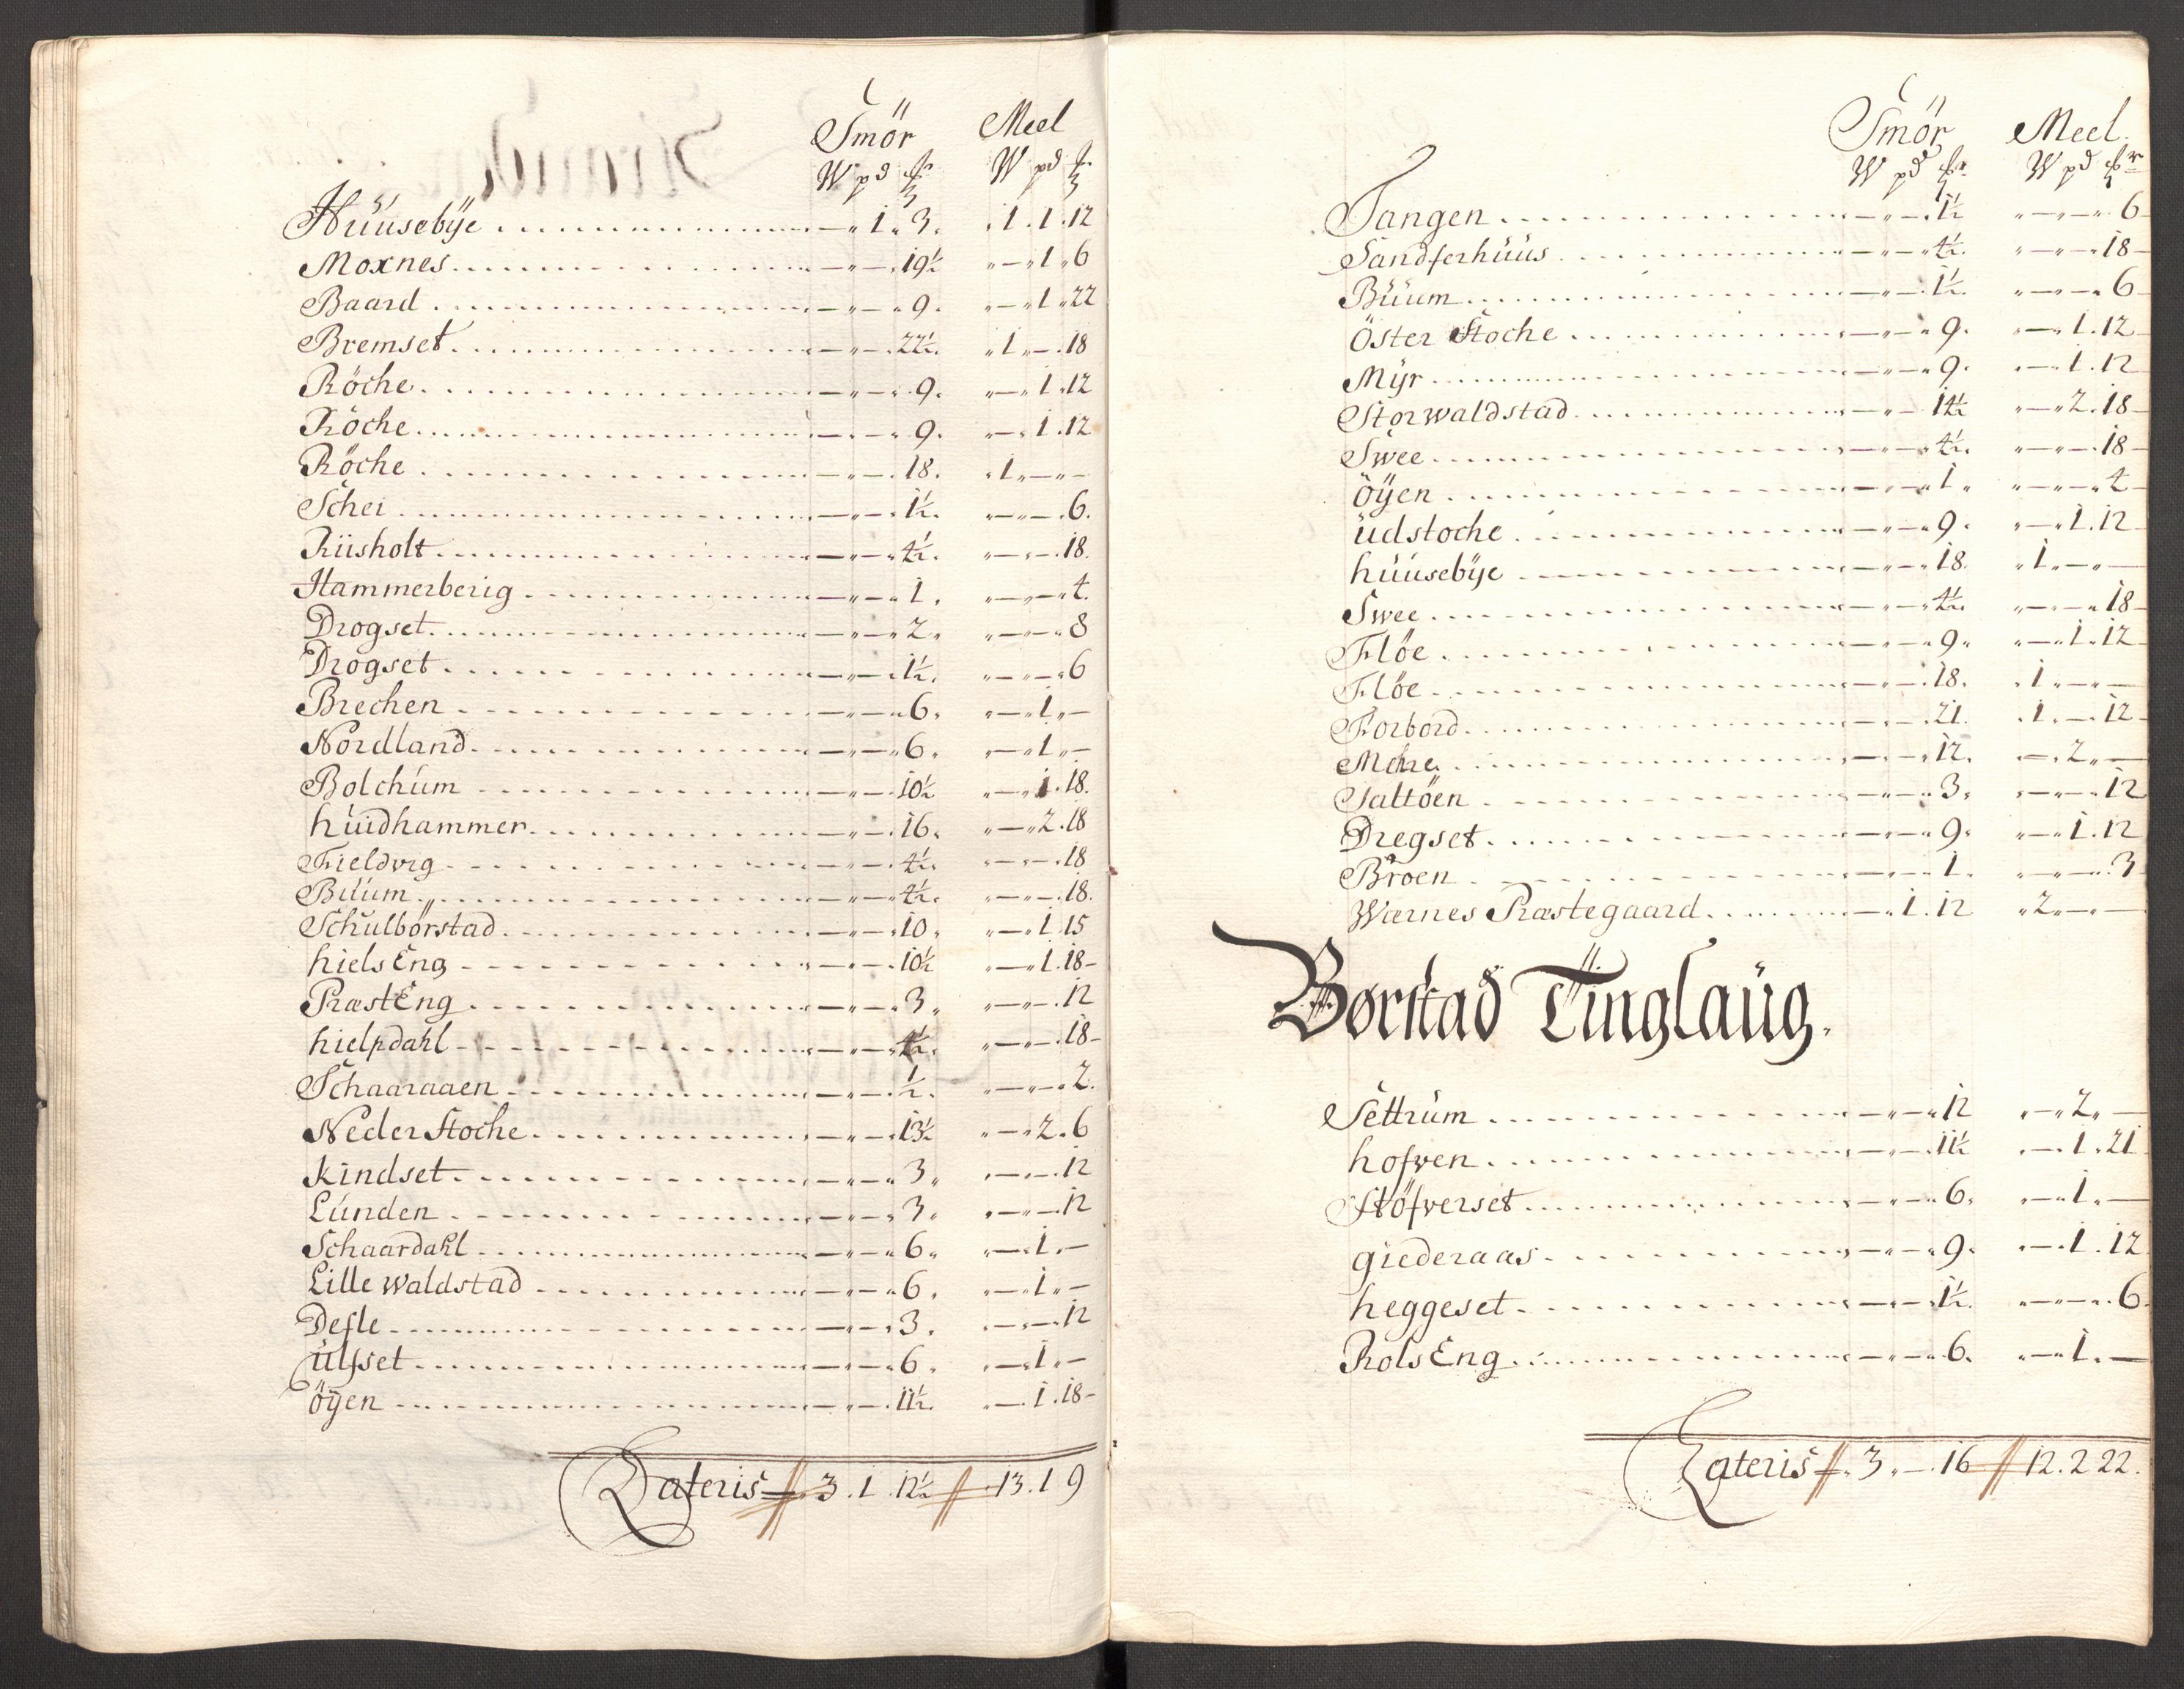 Smör Meel
W pd W pd
Húúsebÿe - " 1 " 3 " 1 . 1 . 12
Moxnes - " - " 19½ " - " 1 " 6
Baard - " - " 9 " - " 1 " 22
Bremset - " - " 22½ " 1 " - " 18
Röche - " - " 9 " - " 1 " 12
Röche - " - " 9 " - " 1 . 12
Röche - " - " 18 . 1 " - " -
Schei - " - " 1½ " - " - " 6
Riisholt - " - " 4½ " - " - " 18
Hammerberig - " - " 1 " - " - " 4
Drogset - " - " 2 " - " - " 8
Drogset - " - " 1½ " - " - " 6
Brechen - " - " 6 " - " 1 " -
Nordland - " - " 6 " - " 1 " -
Bolchúm - " - " 10½ " - " 1 . 18
húúdhammer - " - " 16 " - " 2 . 18
Fieldvig - " - " 4½ " - " - " 18
Búúm - " - " 4½ " - " - " 18
Schulbörstad - " - " 10 " - " 1 15
hiels Eng - " - " 10½ " - " 1 . 18
Præst Eng - " - " 3 " - " - " 12
hielpdahl - " - " 4½ " - " - " 18
Schaaraaen - " - " ½ " - " - " 2
Neder Stoche - " - " 13½ " - " 2 . 6
kindset - " - " 3 " - " - " 12
Lúnden - " - " 3 " - " - " 12
Schaardahl - " - " 6 " - " 1 " -
Lille waldstad - " - " 6 " - " 1 " -
Defle - " - " 3 " - " - " 12
ülfset - " - " 6 " - " 1 " -
öÿen - " - " 11½ " - " 1 . 18
Lateris 3 . 1 . 12½ 13 . 1 9
Smör Meel
W pd W pd
Tangen - " - " 1½ " - " - " 6
Sandferhúús - " - " 4½ " - " - " 18
Búúm - " - " 1½ " - " - " 6
Öster Stoche - " - " 9 " - " 1 . 12
Mÿr - " - " 9 " - " 1 . 12
Storwaldstad - " - " 14½ " - " 2 . 18
Swee - " - " 4½ " - " - " 18
öÿen - " - " 1 " - " - " 4
údstoche - " - " 9 " - " 1 . 12
húúsebÿe - " - " 18 " 1 " - " -
Swee - " - " 4½ " - " - " 18
Flöe - " - " 9 " - " 1 . 12
Flöe - " - " 18 . 1 " - " -
Forbord - " - " 21 . 1 " - " 12
- " - " 12 " - " 2 " -
Saltöen - " - " 3 " - " - " 12
Dregset - " - " 9 " - " 1 . 12
Bröen - " - " 1 " - " - " 3
Wærnes Præstegaard - " 1 . 12 " 2 " - " -
Börstad Tinglaúg.
Settrúm - " - " 12 " - " 2 " -
hofven - " - " 11½ " - " 1 . 21
Stöfverset - " - " 6 " - " 1 " -
giederaas - " - " 9 " - " 1 . 12
heggeset - " - " 1½ " - " - " 6
Rols Eng - " - " 6 " - " 1 " -
Lateris 3 " - . 16 12 . 2 22